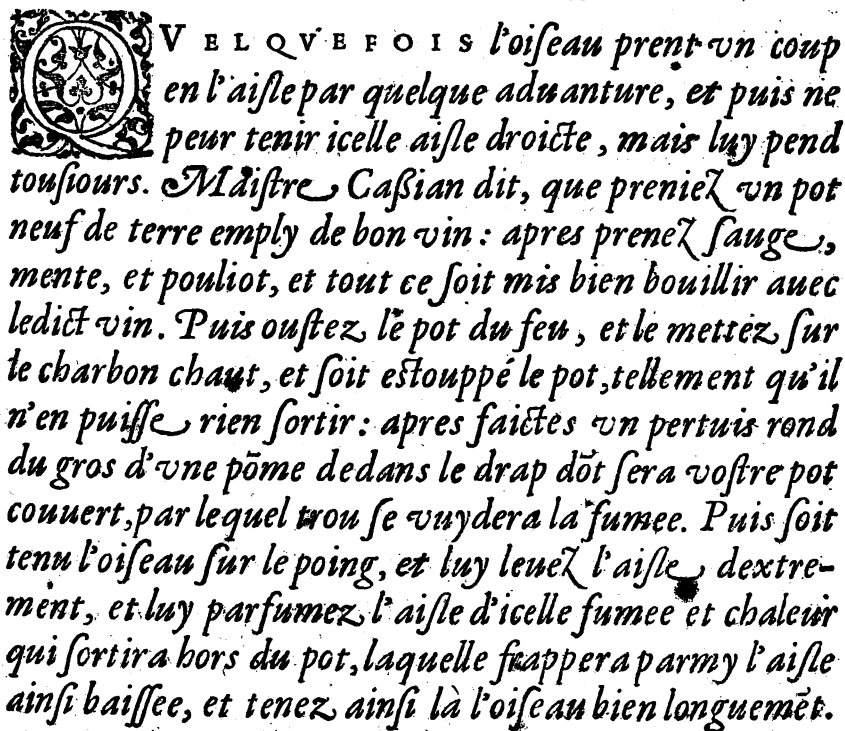 QVELQVEFOIS l'oiſeau prent vn coup
en l'aiſle par quelque aduanture, et puis ne
peur tenir icelle aiſle droicte, mais luy pend
touſiours. Maiſtre Caßian dit, que preniez vn pot
neuf de terre emply de bon vin: apres prenez ſauge,
mente, et pouliot, et tout ce ſoit mis bien bouillir auec
ledict vin. Puis ouſtez le pot du feu, et le mettez ſur
le charbon chaut, et ſoit eſtouppé le pot, tellement qu'il
n'en puiſſe rien ſortir: apres faictes vn pertuis rond
du gros d'vne põme dedans le drap dõt ſera voſtre pot
couuert, par lequel trou ſe vuydera la fumee. Puis ſoit
tenu l'oiſeau ſur le poing, et luy leuez l'aiſle dextre-
ment, et luy parfumez l'aiſle d'icelle fumee et chaleur
qui ſortira hors du pot, laquelle frappera parmy l'aiſle
ainſi baiſſee, et tenez ainſi là l'oiſeau bien longuemẽt.